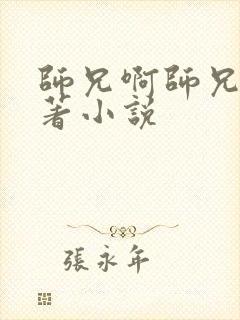 師兄啊師兄
著小説
張永年